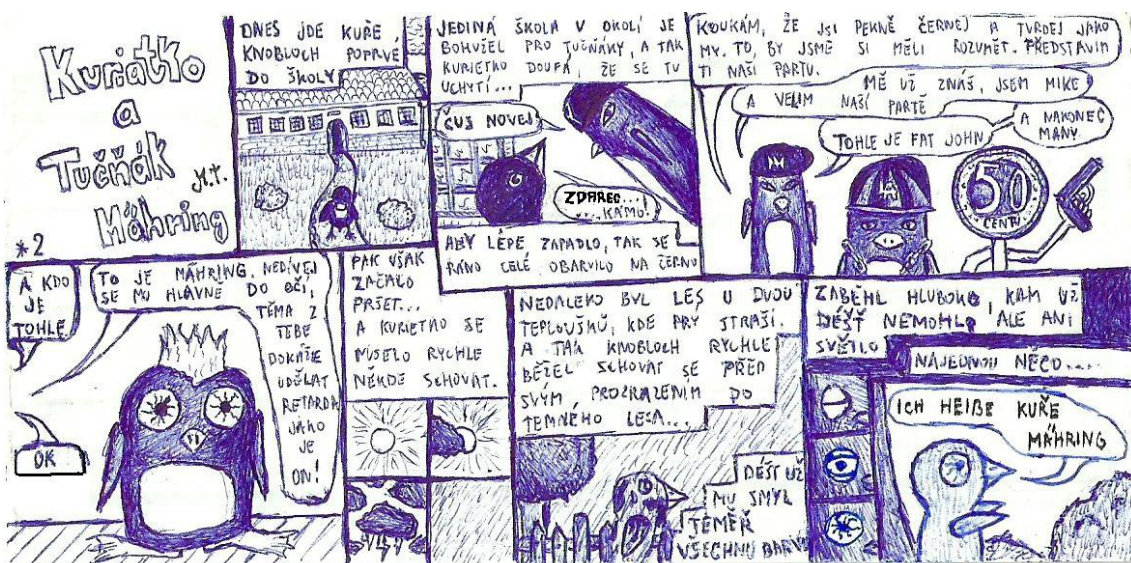 Kuřátko
a
Tučňák
Mähring
M.T.
*2
DNES JDE KUŘE
KNOBLOCH POPRVÉ
DO ŠKOLY
JEDINÁ ŠKOLA V OKOLÍ JE
BOHUŽEL PRO TUČŇÁKY, A TAK
KUŘETKO DOUFÁ, ŽE SE TU
UCHYTÍ...
ČUS NOVEJ
ZDAREC...!
...KÁMO!
ABY LÉPE ZAPADLO, TAK SE
RÁNO CELÉ OBARVILO NA ČERNO
KOUKÁM, ŽE JSI PEKNĚ ČERNEJ A TVRDEJ JAKO
MY. TO, BY JSME SI MĚLI ROZUMĚT. PŘEDSTAVIM
TI NAŠÍ PARTU.
MĚ UŽ ZNÁŠ, JSEM MIKE
A VELIM NAŠÍ PARTĚ
TOHLE JE FAT JOHN
A NAKONEC
MANY.
50
CENTŮ
A KDO
JE
TOHLE
OK
TO JE MÄHRING, NEDÍVEJ
SE MU HLAVNE DO OČÍ,
TĚMA Z
TEBE
DOKÁŽE
UDĚLAT
RETARDA
JAKO
JE
ON!
PAK VŠAK
ZAČALO
PRŠET...
A KUŘETKO SE
MUSELO RYCHLE
NĚKDE SCHOVAT.
NEDALEKO BYL LES U DVOU
TEPLOUŠKŮ, KDE PRÝ STRAŠÍ.
A TAK KNOBLOCH RYCHLE
BĚŽEL SCHOVAT SE PŘED
SVÝM PROZRAZENÍM DO
TEMNÉHO LESA...
DÉŠŤ UŽ
MU SMYL
TÉMĚŘ
VŠECHNU BARVU
ZABĚHL HLUBOKO, KAM UŽ
DÉŠŤ NEMOHL, ALE ANI
SVĚTLO
NAJEDNOU NĚCO....
ICH HEIßE KUŘE
MÄHRING